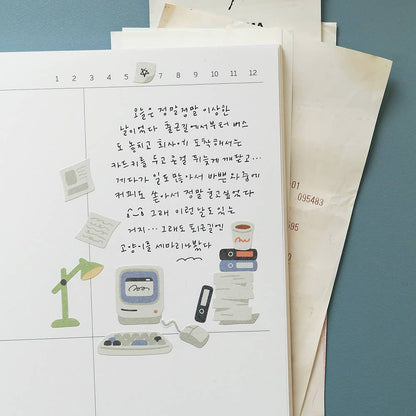 1 2 3 4 5 7 8 9 10 11 12
오늘은 정말정말 이상한
날이었다 출근길에서부터 버스
도 놓치고 회사에 도착해서는
카드키를 두고 온걸 뒤늦게 깨닫고...
게다가 일도 많아서 바쁜 와중에
커피도 쏟아서 정말 울고싶었다
그래 이런 날도 있는
거지... 그래도 퇴근길엔
고양이를 세마리나 봤다
01
095483